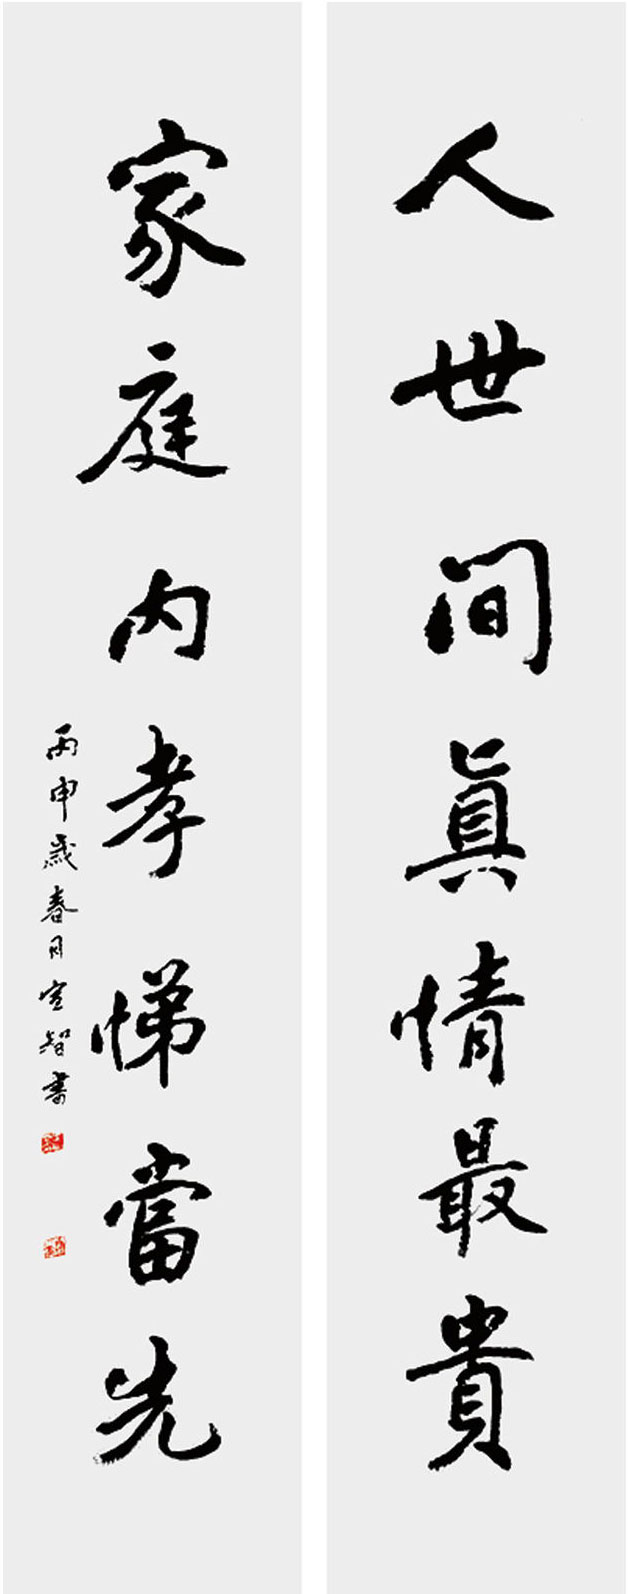 人世间真情最貴
家庭内孝悌當先
丙申歲春月宣智書